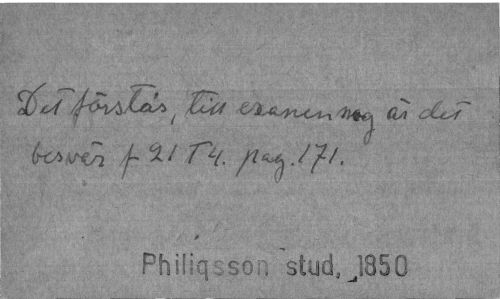 Det förstås, till examen nog är det
besvär f 21 T4. pag. 171.
Philiqsson stud, 1850